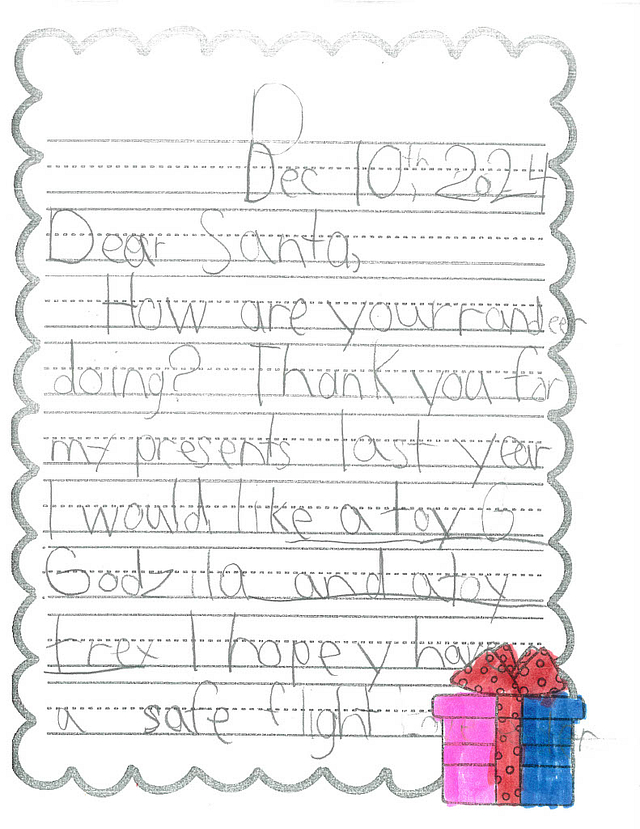 D
Dec 10th, 2024
Dear Santa,
How are your randeer
doing? Thank you for
my presents last year
I would like a toy G
Godzilla and a toy
trex I hope y have
a safe flight